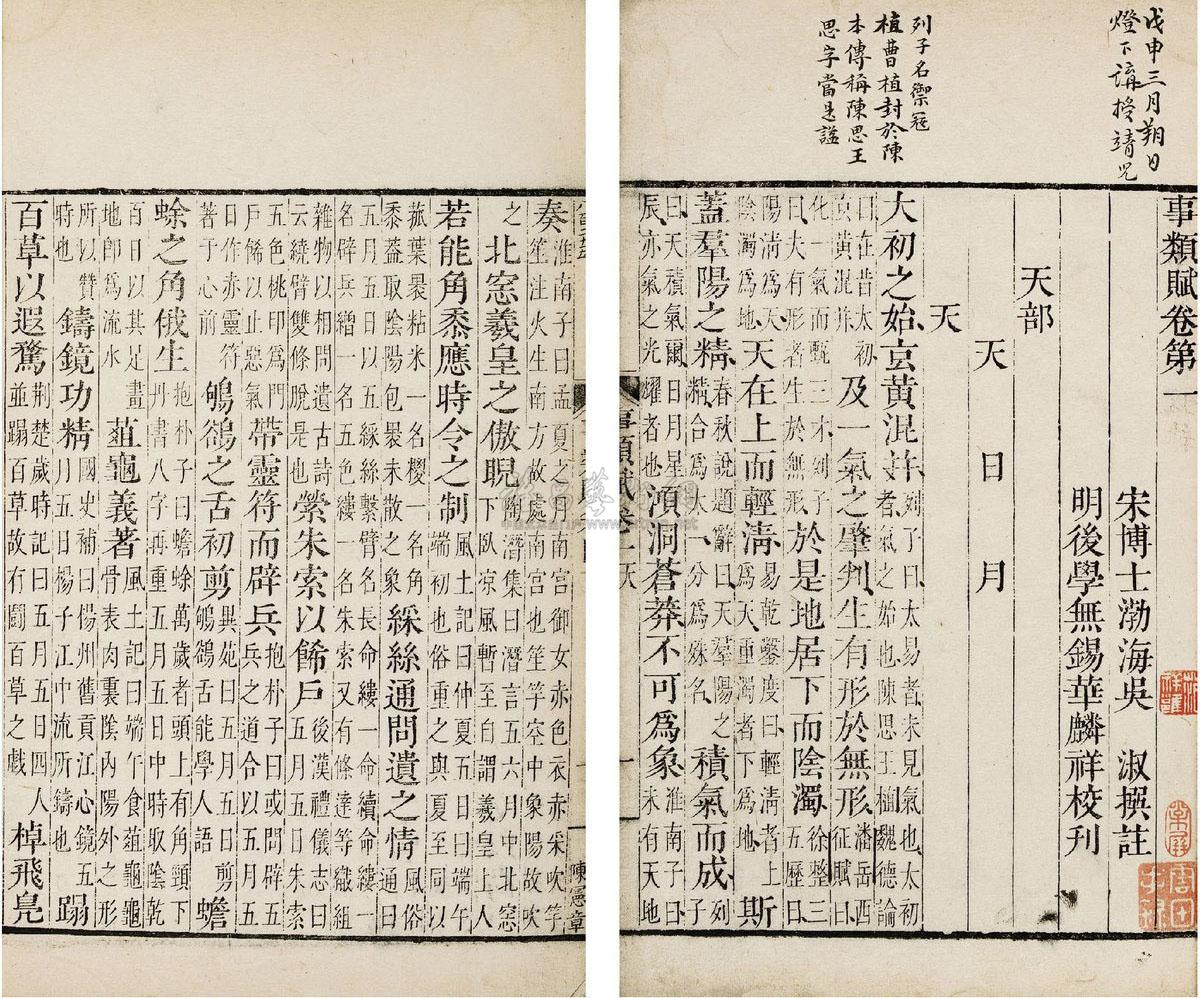 戊申三月朔日
燈下講授靖兒
列子名禦寇
植曹植封於陳
本傳稱陳思王
思字當是謚
事類賦卷第一
宋博士渤海吳 淑撰註
明後學無錫華麟祥校刊
天部
天 日 月
天
大初之始玄黃混并列子曰太易者未見氣也太初者氣之始也陳思王植魏德論
曰在昔太初玄黃混并及一氣之肇判生有形於無形潘岳西征賦曰
化一氣而甄三才列子曰夫有形者生於無形於是地居下而陰濁徐整三五歷曰
陽清為天陰濁為地天在上而輕清易乾鑿度曰輕清者上為天重濁者下為地斯
蓋羣陽之精春秋說題辭曰天羣陽之精合為太一分為殊名積氣而成列子
曰天積氣爾日月星辰亦氣之光耀者也澒洞蒼莽不可為象淮南子曰未有天地
事類賦卷一 天 一
陳憲章
奏淮南子曰孟夏之月南宮御女赤色衣赤采吹竽笙注火生南方故處南宮也笙竽空中象陽故吹
之北窓羲皇之傲睨陶潛集曰潛言五六月中北窓下臥凉風暫至自謂羲皇上人
若能角黍應時令之制風土記曰仲夏五日曰端午端初也俗重之與夏至同以
菰葉裹粘米一名糉一名角黍蓋取陰陽包裹未散之象綵絲通問遺之情風俗通曰
五月五日以五綵絲繫臂名長命縷一命續命縷一名辟兵繒一名五色縷一名朱索又有條達等織組
雜物以相問遺古詩云繞臂雙條脫是也縈朱索以餙戶後漢禮儀志曰五月五日朱索
五色桃印為門戶餙以止惡氣帶靈符而辟兵抱朴子曰或問辟五兵之道合以五月五
日作赤靈符著于心前鴝鵒之舌初剪異苑曰五月五日剪鴝鵒舌能學人語蟾
蜍之角俄生抱朴子曰蟾蜍萬歲者頭上有角頸下丹書八字再重五月五日中時取陰乾
百日以其足畫地即為流水葅龜義著風土記曰端午食葅龜龜骨表肉裏陰內陽外之形
所以贊時也鑄鏡功精國史補曰楊州舊貢江心鏡五月五日楊子江中流所鑄也蹋
百草以遐騖荆楚歲時記曰五月五日四人並蹋百草故有鬬百草之戲棹飛鳧